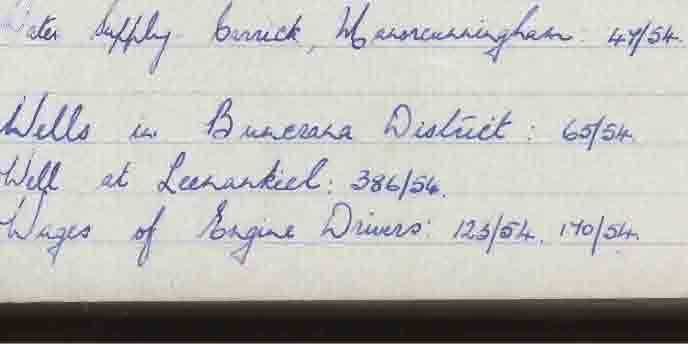 Water Supply Carrick, Manorcunningham: 47/54.
Wells in Buncrana District: 65/54.
Well at Leenankiel: 386/54.
Wages of Engine Drivers: 123/54. 170/54.